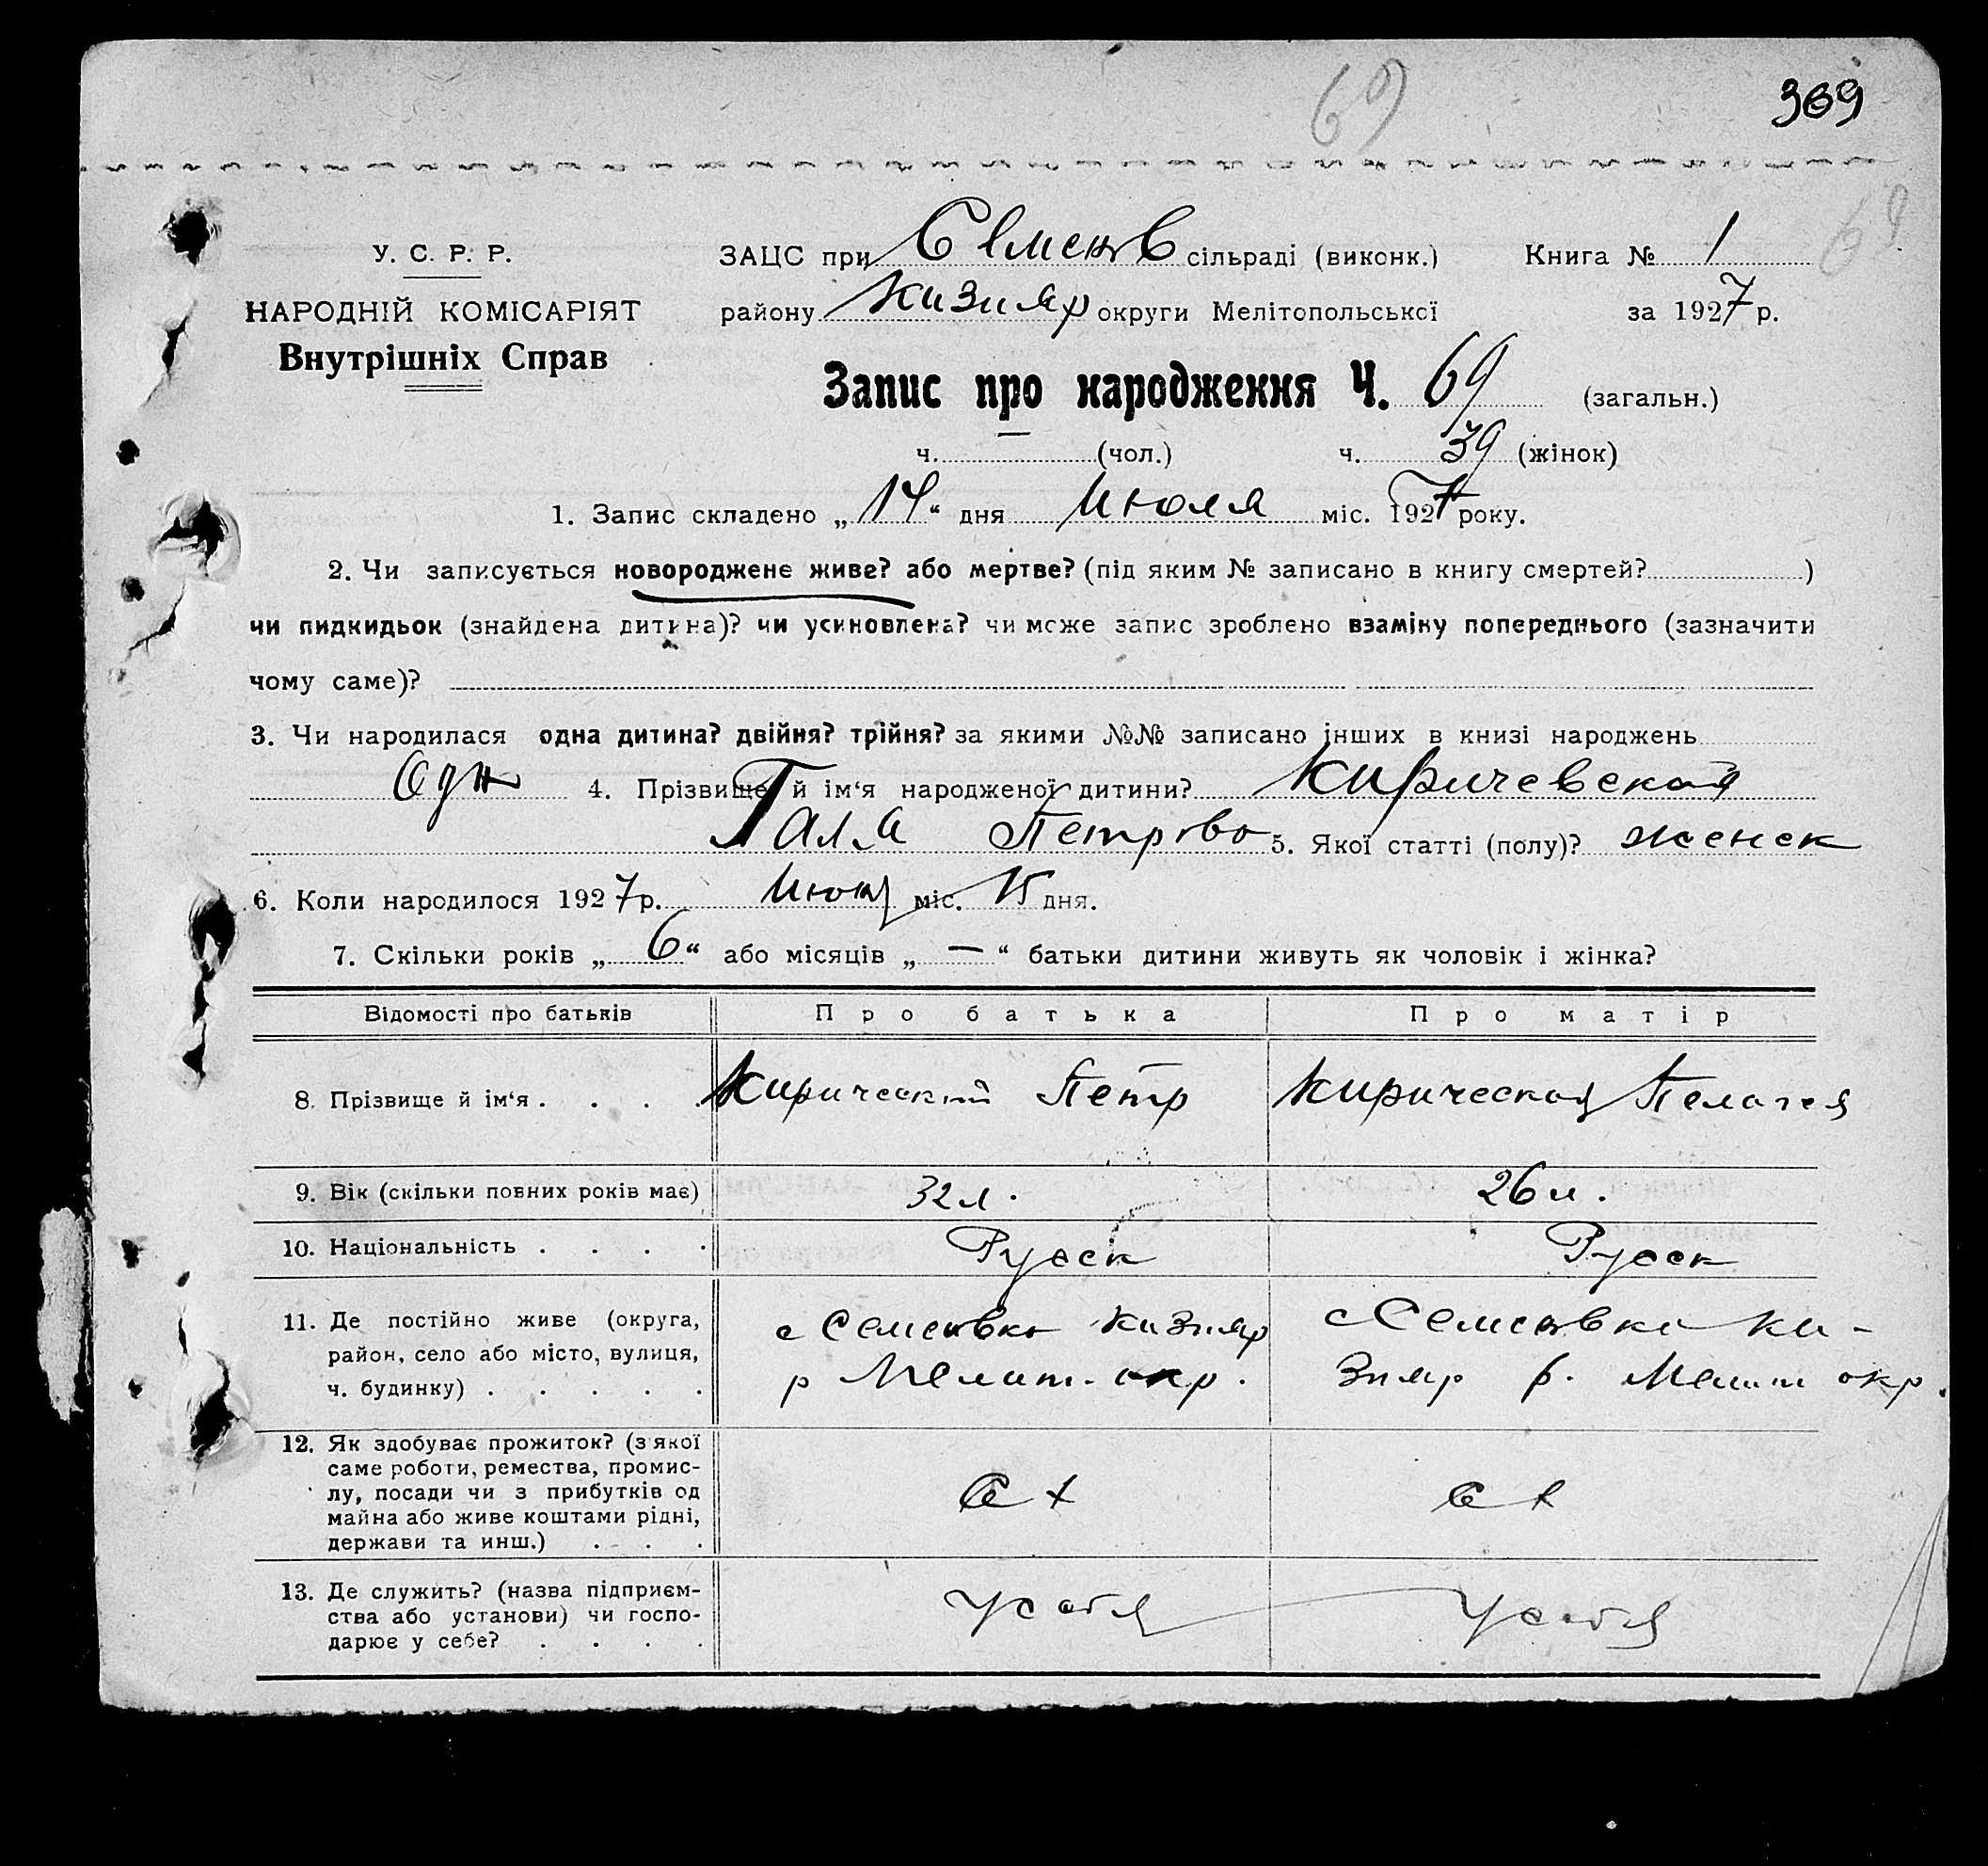 69
369
69
У. С. Р. Р.
НАРОДНІЙ КОМІСАРІЯТ
Внутрішніх Справ
ЗАЦС при Семенов сільраді (виконк.) Книга № 1
району Кизияр округи Мелітопольської за 1927 р.
Запис про народження Ч. 69 (загальн.)
ч. — (чол.) ч. 39 (жінок)
1. Запис складено „14“ дня Июля міс. 1927 року.
2. Чи записується новороджене живе? або мертве? (під яким № записано в книгу смертей? )
чи пидкидьок (знайдена дитина)? чи усиновлена? чи може запис зроблено взаміну попереднього (зазначити
чому саме)?
3. Чи народилася одна дитина? двійня? трійня? за якими №№ записано інших в книзі народжень
Одн 4. Прізвище й ім‘я народженої дитини? Киричевская
Гала Петрово 5. Якої статті (полу)? женск
6. Коли народилося 1927 р. міс. 15 дня.
7. Скільки років „6“ або місяців „—“ батьки дитини живуть як чоловік і жінка?
Відомості про батьків Про батька Про матір
8. Прізвище й ім‘я . . . . Кирический Петр Кирическая Пелагея
9. Вік (скільки повних років має) 32 л. 26 л.
10. Національність . . . . Русск Русск
11. Де постійно живе (округа,
район, село або місто, вулиця,
ч. будинку) . . . . .
с Семеновка Кизияр
р Мелит. окр.
с Семеновка Ки-
зияр р. Мелит окр.
12. Як здобуває прожиток? (з якої
саме роботи, ремества, промис-
лу, посади чи з прибутків од
майна або живе коштами рідні,
держави та инш.) . . .
С х С х
13. Де служить? (назва підприєм-
ства або установи) чи госпо-
дарює у себе? . . . .
У себя У себя